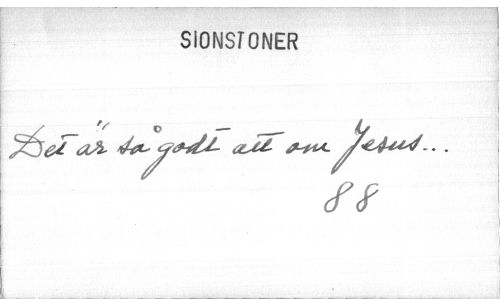 SIONSTONER
Det är så godt att om Jesus...
88